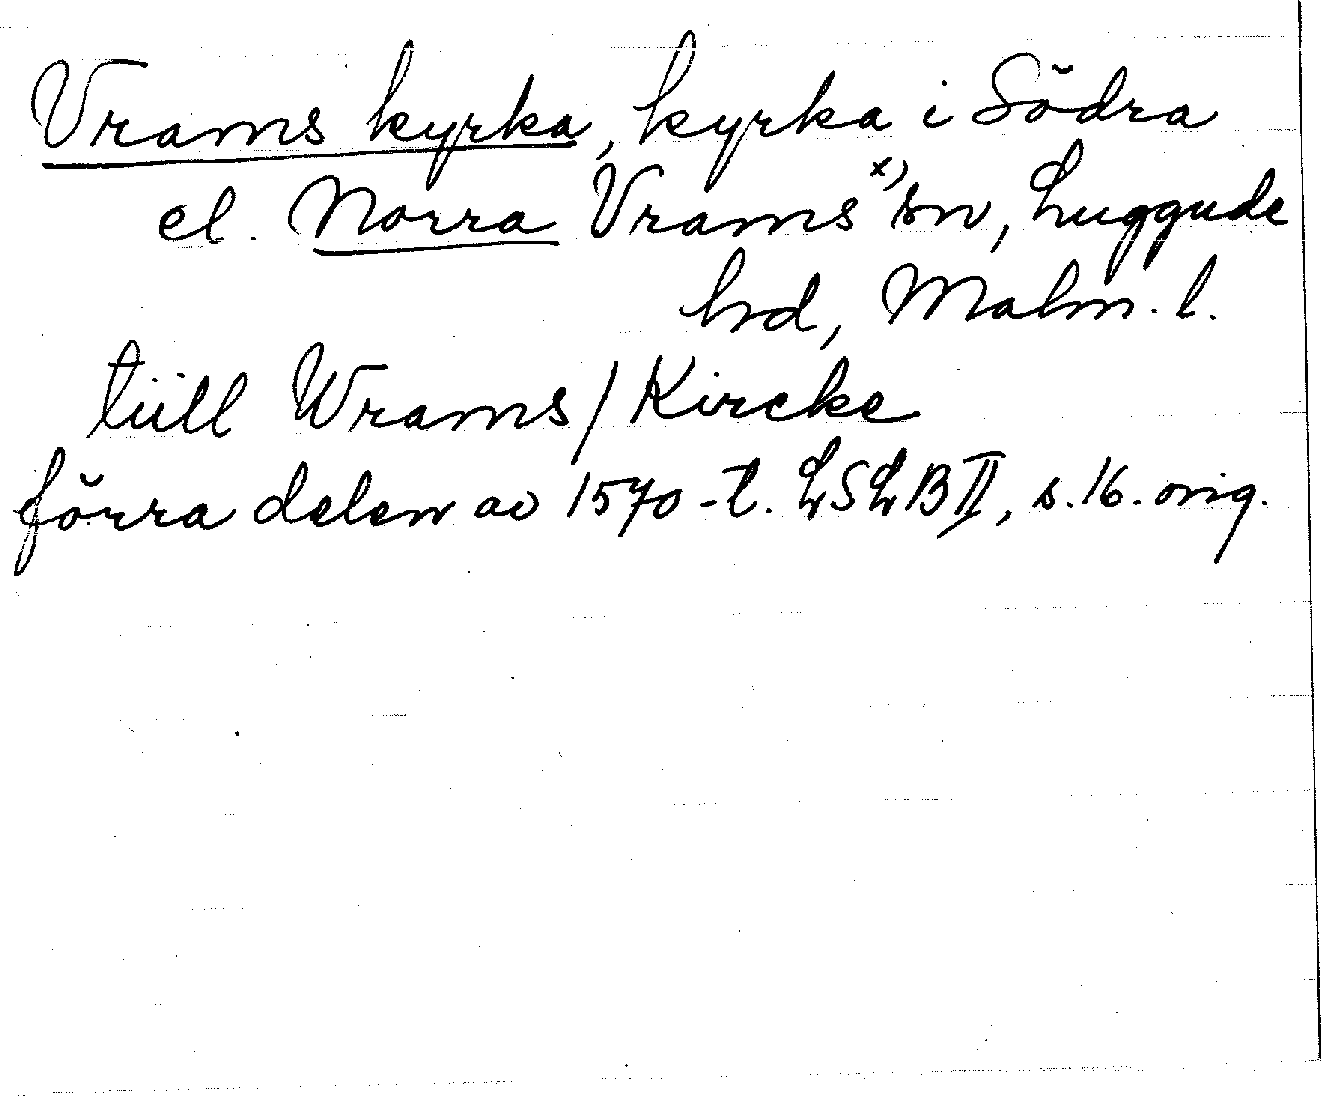 Vrams kyrka, kyrka i Södra
el. Norra Vrams x) sn, Luggude
hd, Malm. l.
tiill Wrams / Kircke
förra delen av 1570-t. LSLB II, s. 16. orig.